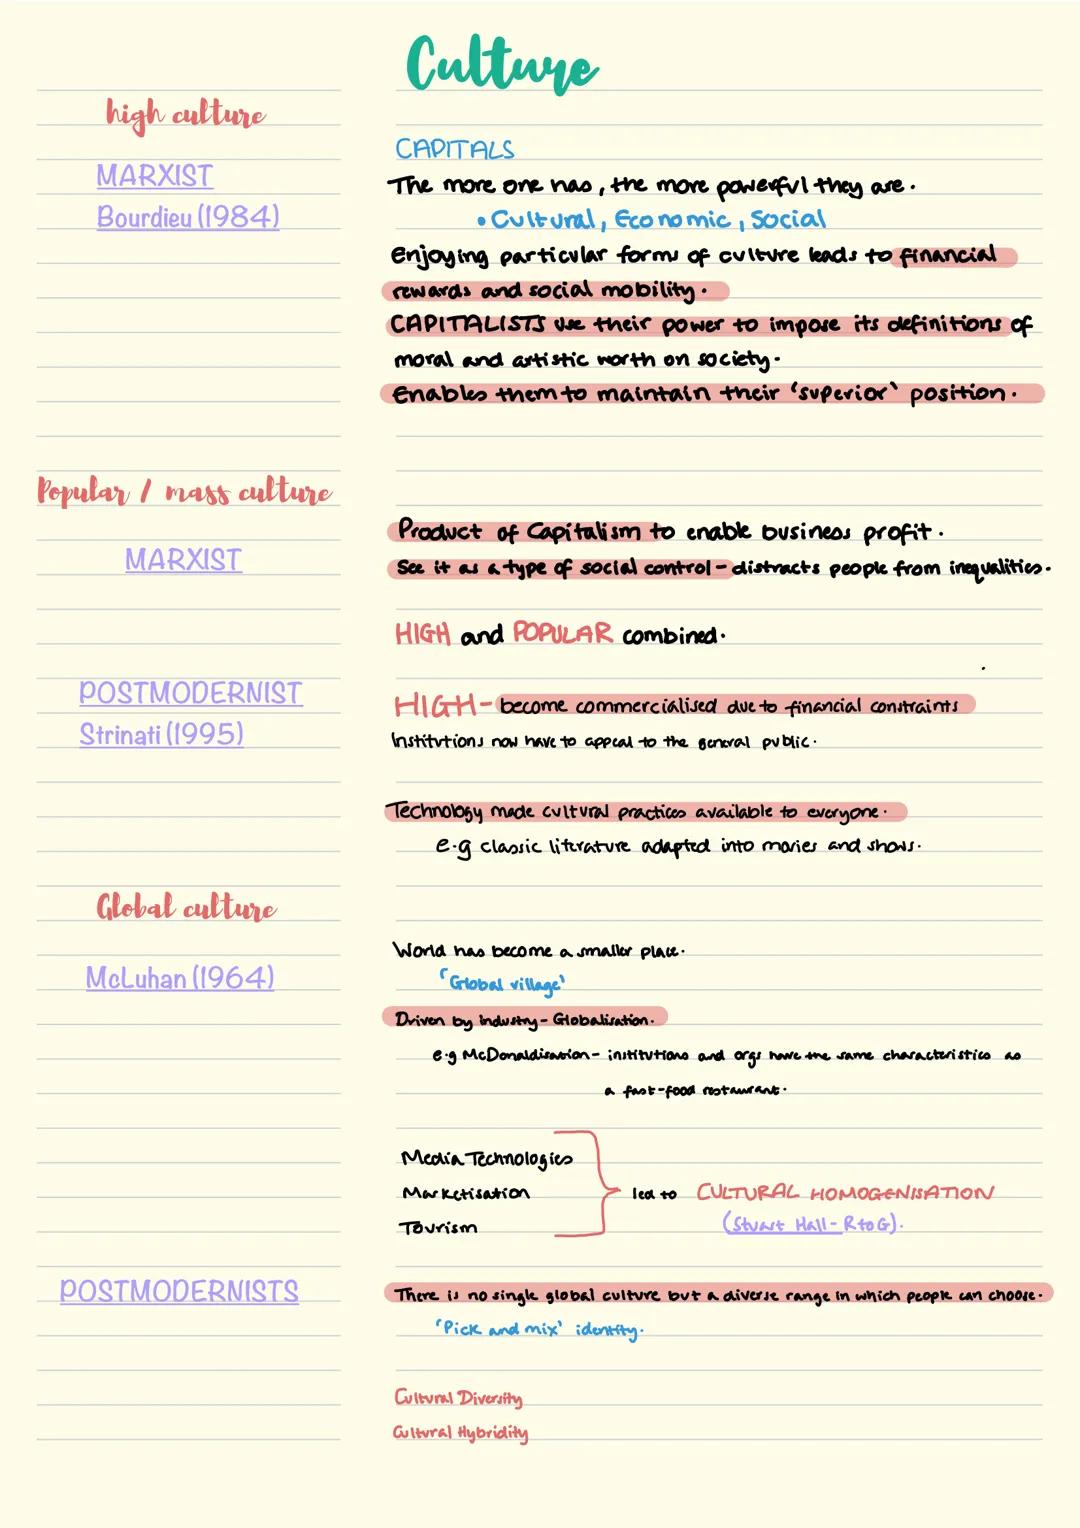 Culture
high culture
CAPITALS
MARXIST
Bourdieu (1984)
The more one has, the more powerful they are.
• Cultural, Economic, Social
Enjoying particular forms of culture leads to financial
rewards and social mobility.
CAPITALISTS use their power to impose its definitions of
moral and artistic worth on society.
Enables them to maintain their 'superior' position.
Popular / mass culture
MARXIST
Product of Capitalism to enable business profit.
See it as a type of social control - distracts people from inequalities.
HIGH and POPULAR combined.
POSTMODERNIST
Strinati (1995)
HIGH - become commercialised due to financial constraints
Institutions now have to appeal to the general public.
Technology made cultural practices available to everyone.
e.g classic literature adapted into movies and shows.
Global culture
McLuhan (1964)
World has become a smaller place.
'Global village'
Driven by industry - Globalisation.
e.g McDonaldisation - institutions and orgs have the same characteristics as
a fast-food restaurant.
Media Technologies
Marketisation
Tourism
led to CULTURAL HOMOGENISATION
(Stuart Hall - R to G).
POSTMODERNISTS
There is no single global culture but a diverse range in which people can choose.
'Pick and mix' identity.
Cultural Diversity
Cultural Hybridity